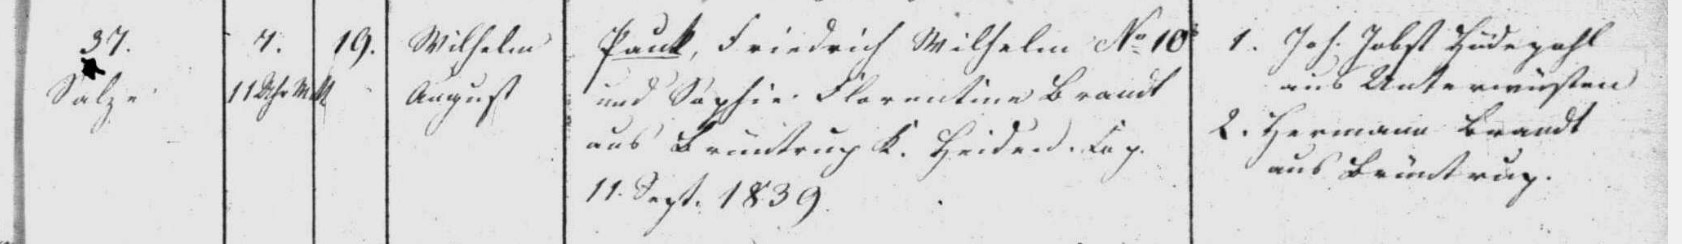 37. 7. 19. Wilhelm Pauk, Friedrich Wilhelm No 10 1. Joh. Jobst Hüdepohl
Salze 11 Uhr August und Sophie Florentine Brandt aus Unterwüsten
aus Brüntrup K. Heiden. Cop. 2. Hermann Brandt
11. Sept. 1839. aus Brüntrup.